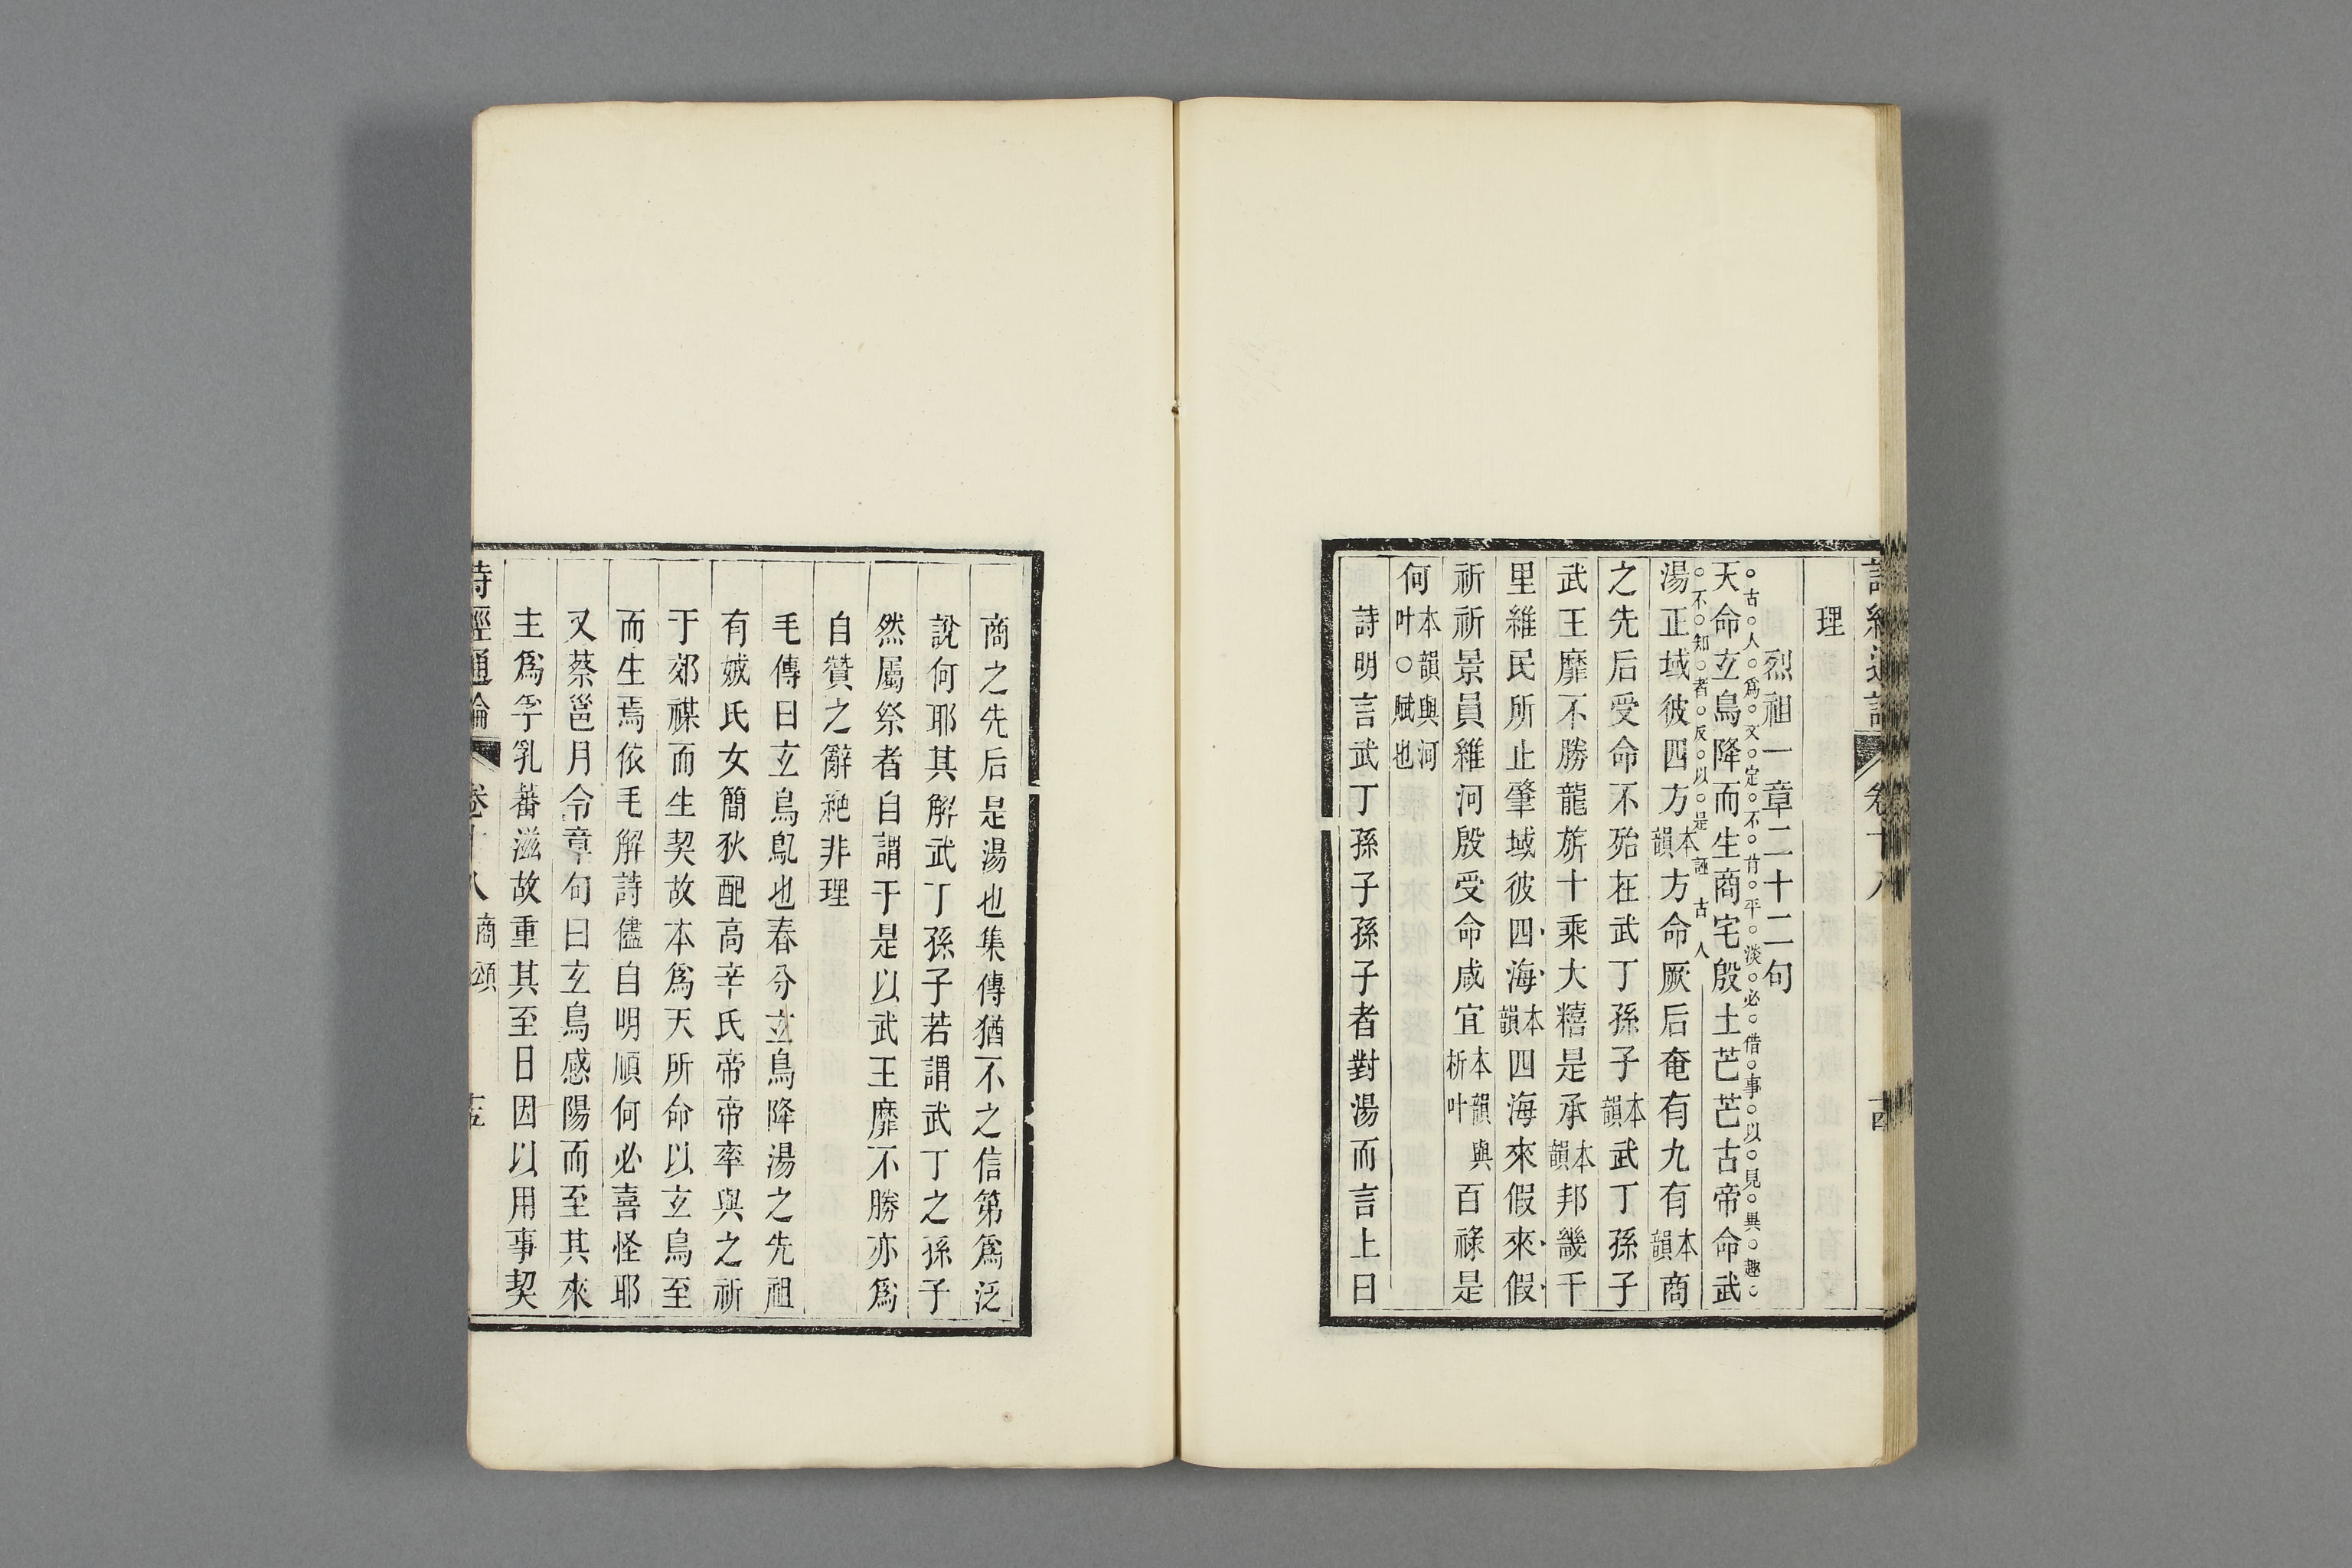 詩經通論 卷十八 十四
理
烈祖一章二十二句
天命玄鳥降而生商宅殷土芒芒古帝命武
古人爲文定不肯平淡必借事以見異趣
湯正域彼四方本韻方命厥后奄有九有本韻商
不知者反以是誣古人
之先后受命不殆在武丁孫子本韻武丁孫子
武王靡不勝龍旂十乘大糦是承本韻邦畿千
里維民所止肇域彼四海本韻四海來假來假
祈祈景員維河殷受命咸宜本韻與析叶百祿是
何本韻與河叶○賦也
詩明言武丁孫子孫子者對湯而言上曰
商之先后是湯也集傳猶不之信第爲泛
說何耶其解武丁孫子若謂武丁之孫子
然屬祭者自謂于是以武王靡不勝亦爲
自贊之辭絶非理
毛傳曰玄鳥鳦也春分玄鳥降湯之先祖
有娀氏女簡狄配高辛氏帝帝率與之祈
于郊禖而生契故本爲天所命以玄鳥至
而生焉依毛解詩儘自明順何必喜怪耶
又蔡邕月令章句曰玄鳥感陽而至其來
主爲孚乳蕃滋故重其至日因以用事契
詩經通論 卷十八 商頌 十五